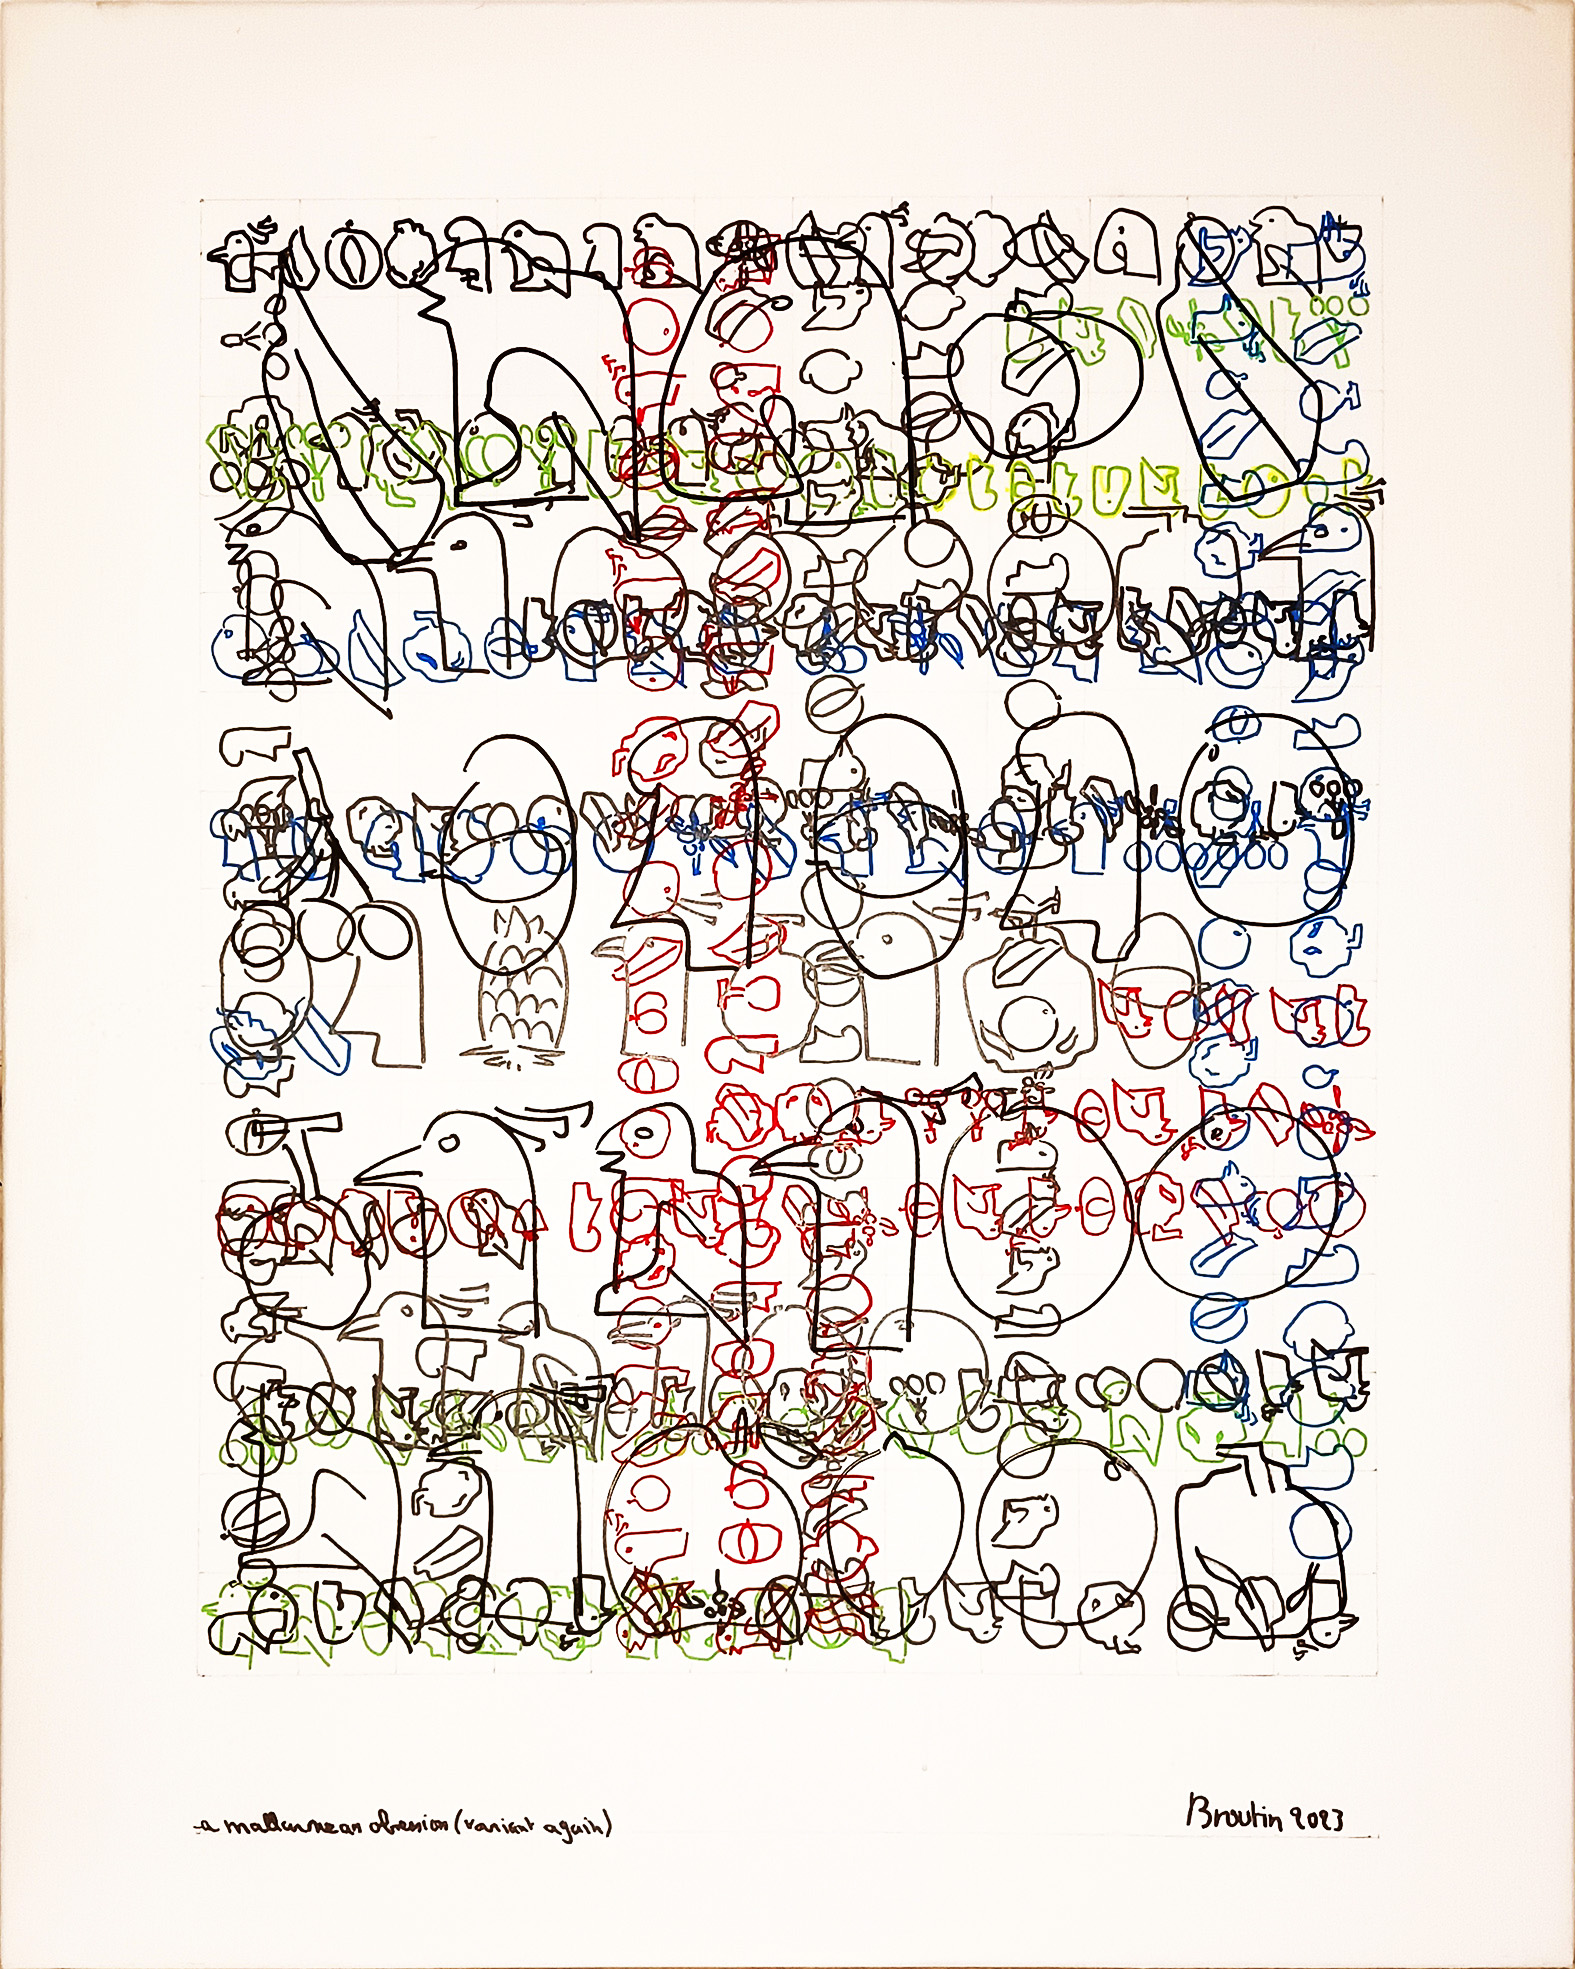 a mallarmean obsession (variant again)
Broutin 2023